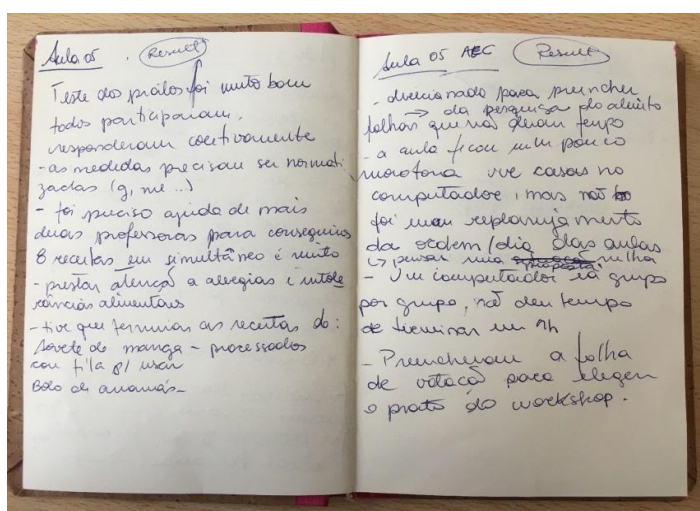 Aula 05 . Result
Teste dos pratos foi muito bom
todos participaram,
responderam coletivamente
- as medidas precisam ser normati
zadas (g, ml ...)
- foi preciso ajuda de mais
duas professoras para conseguirmos
8 receitas em simultâneo é muito
- prestar atenção a alergias e intole
râncias alimentares
- tive que terminar as receitas do:
Sorvete de manga - processados
Bolo de ananás -
Aula 05 AEC Result
- direcionado para preencher
→ da pesquisa do alimento
folhas que não deram tempo
- a aula ficou um pouco
monotona casas no
computador, mas não
foi meu replanejamento
da ordem/dia das aulas
↳ pensar uma proposta melhor
- Um computador ia grupo
por grupo, não deu tempo
de terminar em 1h
- Preencheram a folha
de votação para elegerem
o prato do workshop.